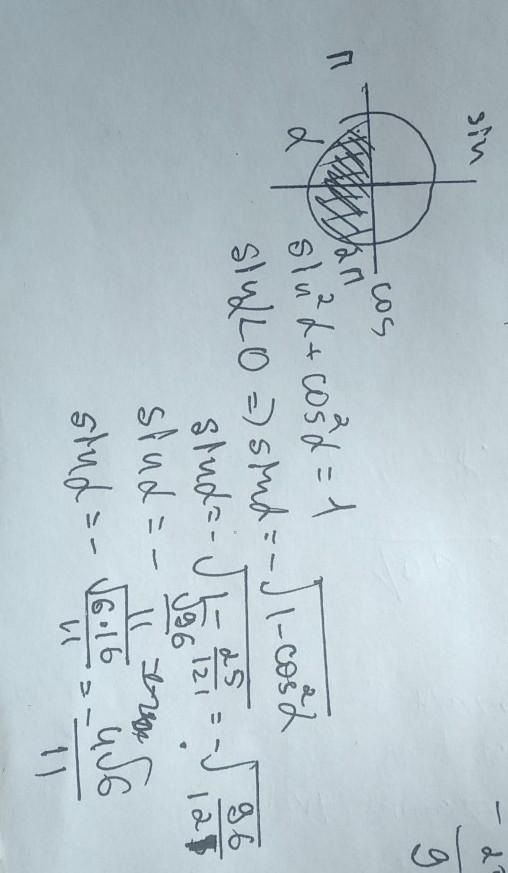 sin
π
α
2π
cos
sin²α + cos²α = 1
sinα < 0 ⇒ sinα = -√(1 - cos²α)
sinα = -√(1 - 25/121) = -√(96/121)
sinα = -√96/11 =
sinα = -√(6·16)/11 = -4√6/11
9